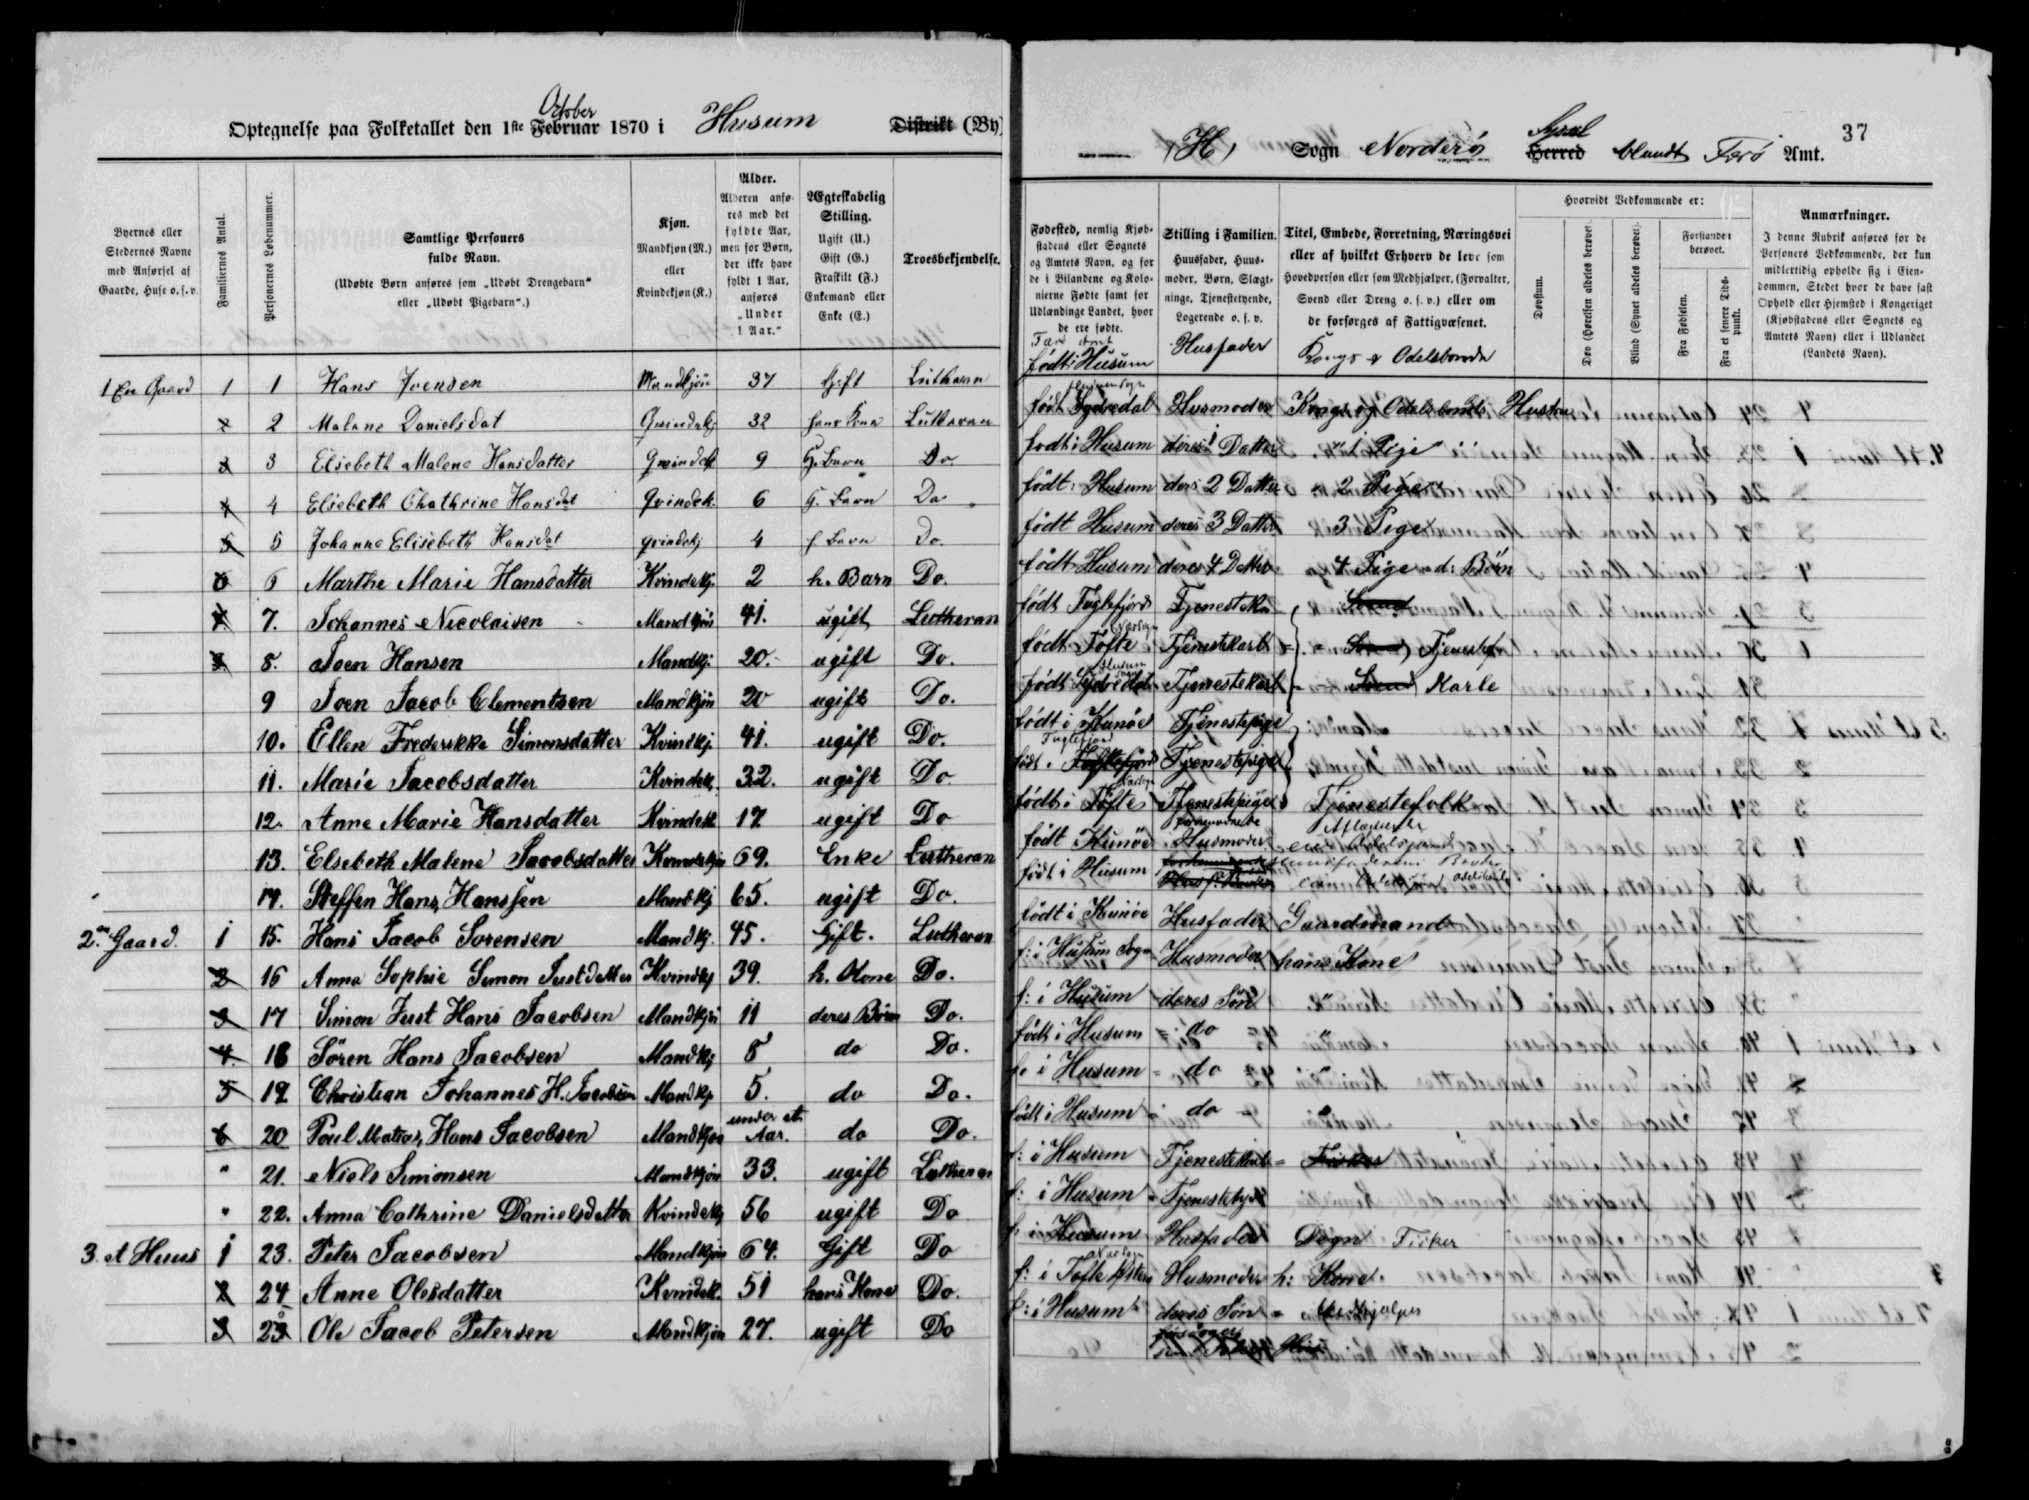 Optegnelse paa Folketallet den 1ste Februar October 1870 i Husum Distrikt (By)
(H) Sogn Norderø Herred Sysel blandt Færø Amt. 37
Byernes eller Stedernes Navne med Anførsel af Gaarde, Huse o. s. v.
Familiernes Antal.
Personernes Løbenummer.
Samtlige Personers fulde Navn.
(Udøbte Børn anføres som „Udøbt Drengebarn“ eller „Udøbt Pigebarn“.)
Kjøn. Mandkjøn (M.) eller Kvindekjøn (K.)
Alder. Alderen anføres med det fyldte Aar, men for Børn, der ikke have fyldt 1 Aar, anføres „Under 1 Aar.“
Ægteskabelig Stilling. Ugift (U.) Gift (G.) Fraskilt (F.) Enkemand eller Enke (E.)
Troesbekjendelse.
Fødested, nemlig Kjøbstadens eller Sognets og Amtets Navn, og for de i Bilandene og Kolonierne Fødte samt for Udlændinge Landet, hvor de ere fødte.
Stilling i Familien. Huusfader, Huusmoder, Børn, Slægtninge, Tjenestetyende, Logerende o. s. v.
Titel, Embede, Forretning, Næringsvei eller af hvilket Erhverv de leve som Hovedperson eller som Medhjælper, (Forvalter, Svend eller Dreng o. s. v.) eller om de forsørges af Fattigvæsenet.
Hvorvidt Vedkommende er:
Døvstum.
Døv (Hørelsen aldeles berøvet.
Blind (Synet aldeles berøvet.
Forstanden berøvet.
Fra Fødselen.
Fra et senere Tidspunkt.
Anmærkninger. I denne Rubrik anføres for de Personers Vedkommende, der kun midlertidig opholde sig i Eiendommen, Stedet hvor de have fast Ophold eller Hjemsted i Kongeriget (Kjøbstadens eller Sognets og Amtets Navn) eller i Udlandet (Landets Navn).
1 En Gaard 1 1 Hans Joensen Mandkjøn 37 Gift Lutheran født i Husum Husfader Kongs og Odelsbonde
2 2 Malene Danielsdat Qvindekj 32 hans Kone Lutheran født Sydredal Husmoder Kongs og Odelsbonds Hustru
3 3 Elsebeth Malene Hansdatter Qvindek 9 h. Barn Do. født i Husum deres 1 Datter 1 Pige
4 4 Elsebeth Chathrine Hansdat Qvindek. 6 h. Barn Do født Husum ders 2 Datter 2 Pige
5 5 Johanne Elisebeth Hansdat Qvindekj 4 h Barn Do. født Husum deres 3 Datter 3 Pige
6 6 Marthe Marie Hansdatter Kvindekj. 2 h. Barn Do. født Husum deres 4 Datter 4 Pige d: Börn
7 7. Johannes Nicolaisen Mandkjön 41. ugift Lutheran født Fuglefjord Tjenestek. Svend
8 8. Joen Hansen Mandkj. 20. ugift Do. født Tofte Tjenestekarl Svend Tjeneste
9 Joen Jacob Clementsen Mandkjön 20 ugift Do. født Sydredal Tjenestekarl Svend Karle
10. Ellen Frederikke Simonsdatter Kvindkj. 41. ugift Do. født i Kunøe Tjenestepige
11. Marie Jacobsdatter Kvindek. 32. ugift Do født i Fuglefjord Tjenestepige
12. Anne Marie Hansdatter Kvindek 17 ugift Do født i Tofte Tjenestepige Tjenestefolk
13. Elsebeth Malene Jacobsdatter Kvindekjön 69. Enke Lutheran født Kunöe Husmoder
14. Steffen Hans Hanssen Mandkj 65. ugift Do. født i Husum
2en Gaard. 1 15. Hans Jacob Sorensen Mandkj. 45. Gift. Lutheran født i Kunöe Husfader Gaardmand
2 16 Anna Sophie Simon Justdatter Kvindkj 39. h. Kone Do. f: i Husum Sogn Husmoder hans Kone
3 17 Simon Just Hans Jacobsen Mandkjön 11 deres Börn Do. f: i Husum deres Sön
4 18 Sören Hans Jacobsen Mandkj 8 do Do. født i Husum do
5 19 Christian Johannes H. Jacobsen Mandkj 5. do Do. f: i Husum do
6 20 Poul Matias Hans Jacobsen Mandkjøn under et Aar. do Do. født i Husum do
" 21. Niels Simonsen Mandkjön 33. ugift Lutheran f: i Husum Tjenestekarl Fisker
" 22. Anna Cathrine Danielsdatter Kvindekj 56 ugift Do f: i Husum Tjenestetyde
3. et Huus 1 23. Peter Jacobsen Mandkjön 64. Gift Do f. i Husum Husfader Degn Fisker
2 24 Anne Olesdatter Kvindek. 51 hans Kone Do. f: i Tofte Husmoder h: Kone
3 25 Ole Jacob Petersen Mandkjön 27. ugift Do f: i Husum deres Søn Medhjælper